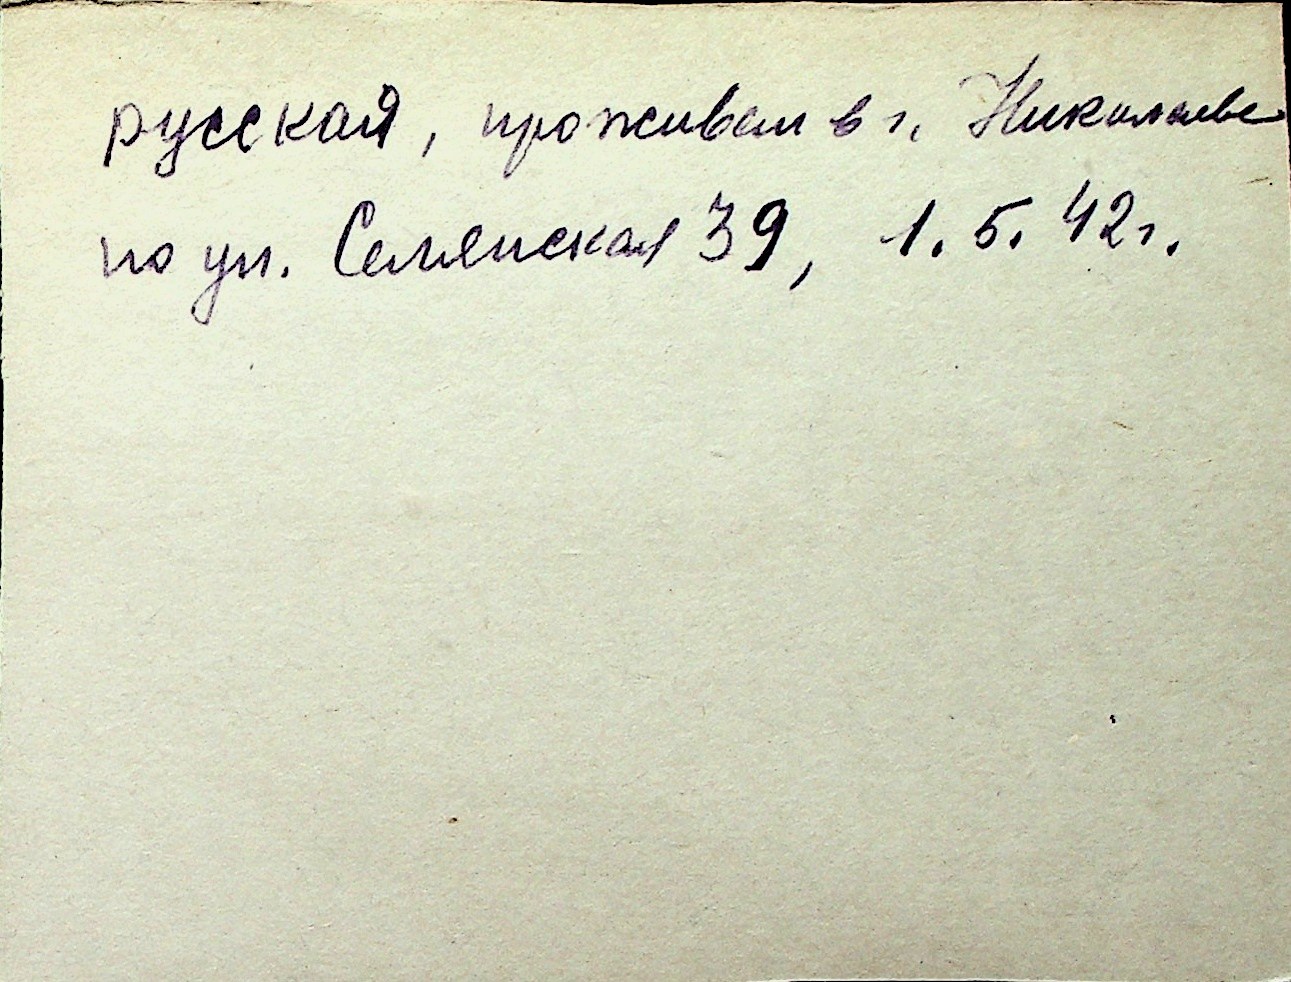 русская, проживал в г. Николаеве
по ул. Селянская 39, 1.5.42г.